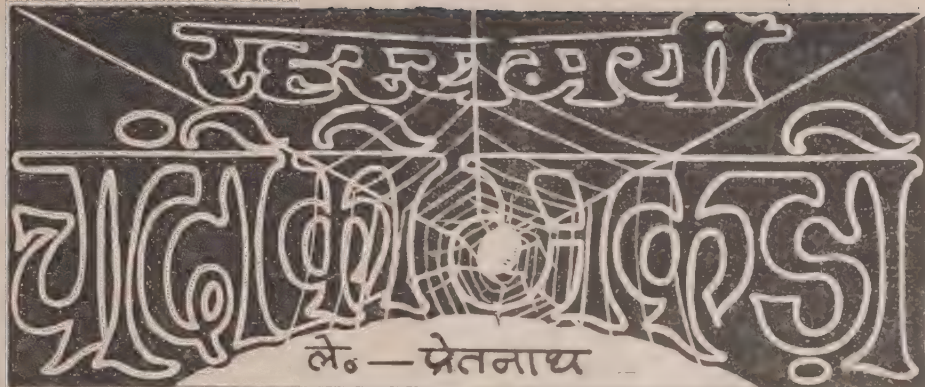 रहस्यमयी
चांदी की मकड़ी
ले॰ — प्रेतनाथ